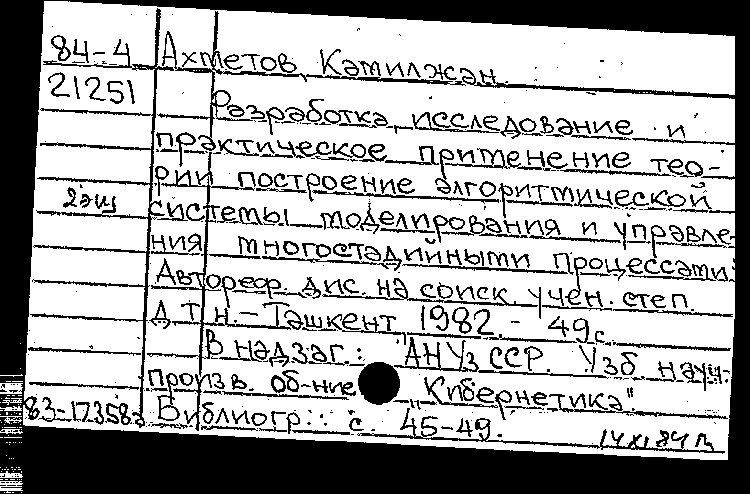 84-4 Ахметов, Камилжан.
21251 Разработка, исследование и
практическое применение тео-
рии построение алгоритмической
2эщ системы моделирования и управле-
ния многостадийными процессами.
Автореф. дис. на соиск. учен. степ.
д.т.н. - Ташкент, 1982. - 49с.
В надзаг.: АН УзССР. Узб науч.-
произв. об-ние "Кибернетика".
83-17358з Библиогр.: с. 45-49. 14 XI 84